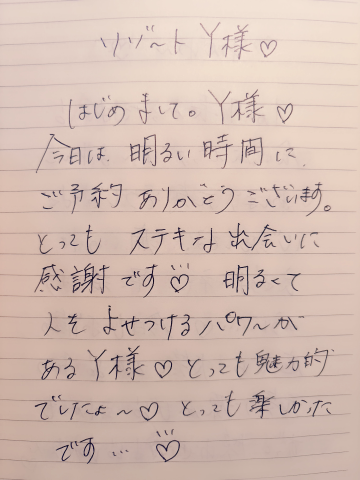 リゾートY様♡
はじめまして。Y様♡
今日は、明るい時間に、
ご予約ありがとうございます。
とってもステキな出会いに
感謝です♡ 明るくて
人をよせつけるパワーが
あるY様♡とっても魅力的
でしたよ～♡とっても楽しかった
です…♡